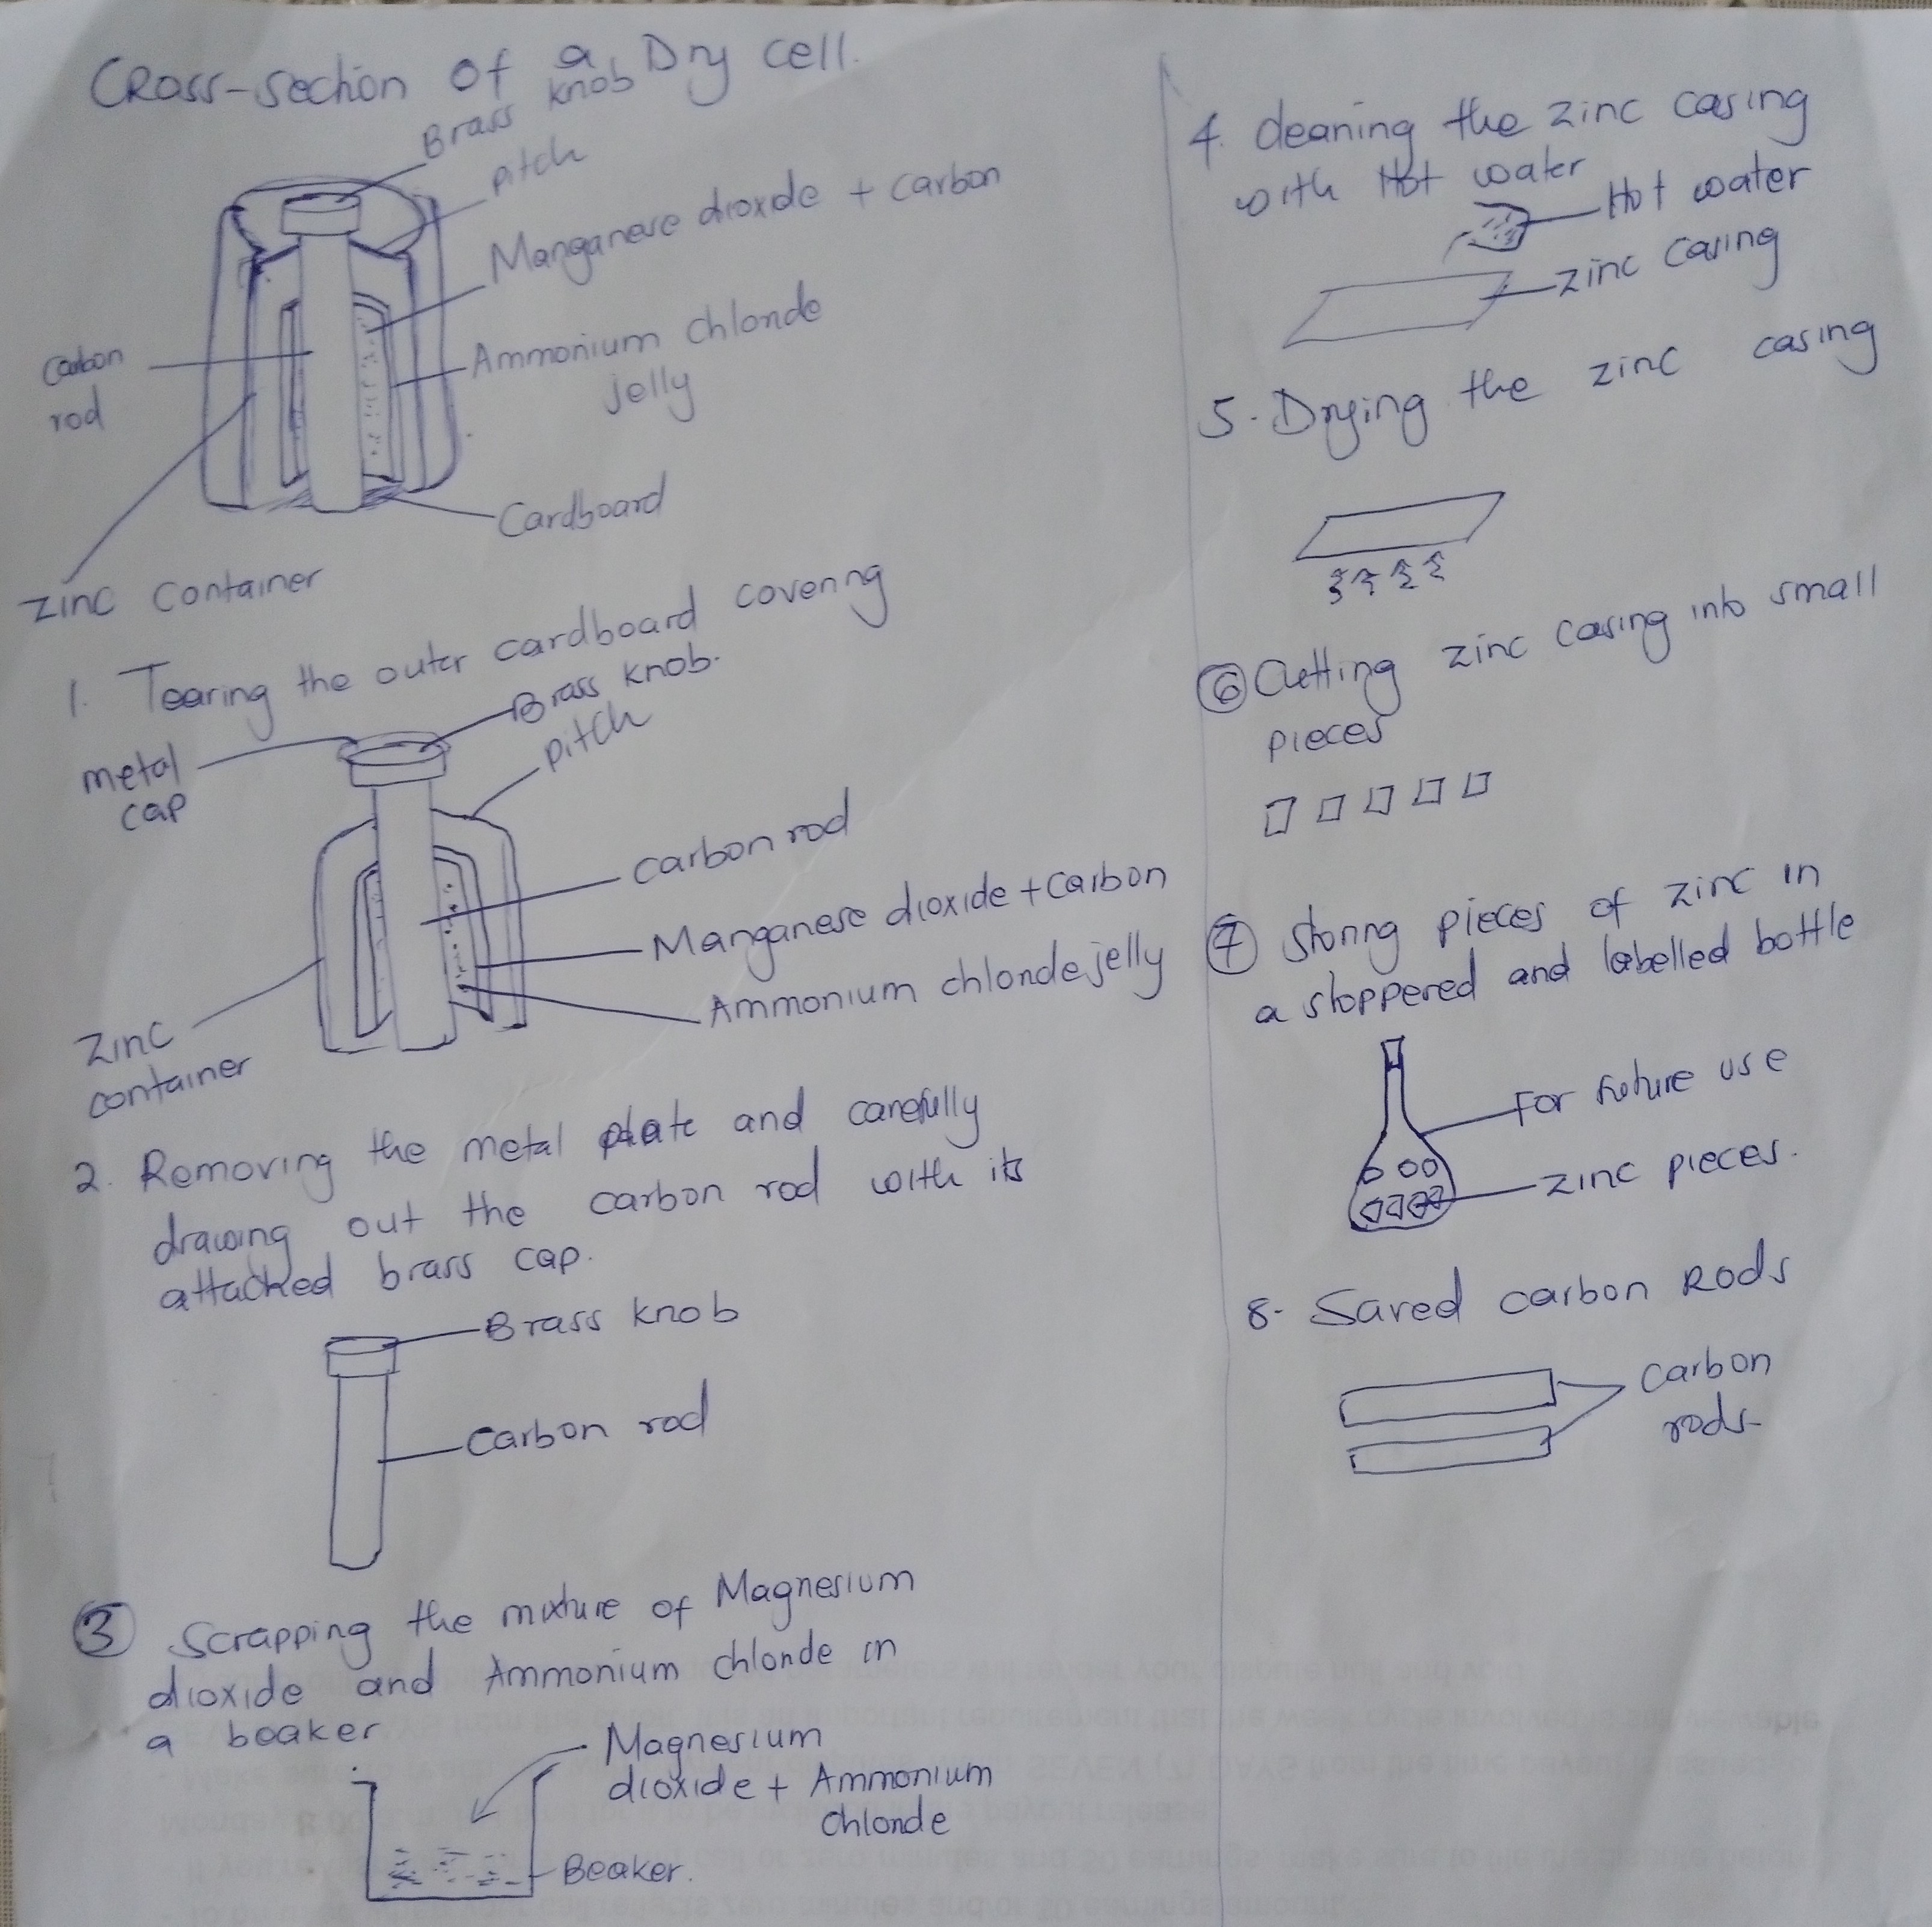 Cross-section of a Dry cell.
Brass knob
pitch
Manganese dioxide + carbon
Ammonium chloride
jelly
carbon
rod
Cardboard
zinc container
1. Tearing the outer cardboard covering
Brass knob.
pitch
metal
cap
carbon rod
Manganese dioxide + carbon
Ammonium chloride jelly
Zinc
container
2. Removing the metal plate and carefully
drawing out the carbon rod with its
attached brass cap.
Brass knob
Carbon rod
3 Scrapping the mixture of Magnesium
dioxide and Ammonium chloride in
a beaker
Magnesium
dioxide + Ammonium
chloride
Beaker.
4. cleaning the zinc casing
with Hot water
Hot water
zinc casing
5. Drying the zinc casing
6 Cutting zinc casing into small
pieces
7 storing pieces of zinc in
a stoppered and labelled bottle
For future use
zinc pieces.
8- Saved carbon Rods
Carbon
rods-